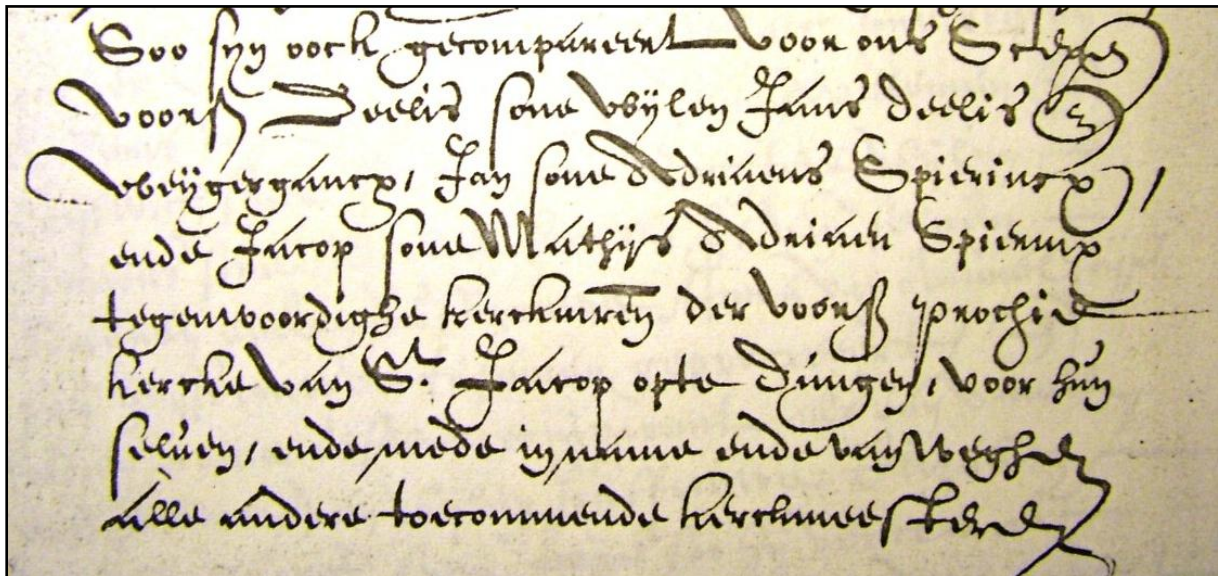 Soo syn oock gecompareert voor ons Scepen
voorß Deelis sone wylen Jans Deelis
Weygergancx, Jan sone Adriaens Spierincx,
ende Jacop sone Mathijs Adriaen Spierinx
tegenwoordighe kerckmren der voorß prochie
kercke van St. Jacop opte Dungen, voor hun
selven, ende mede in name ende van weghen
alle andere toecommende kerckmeesteren